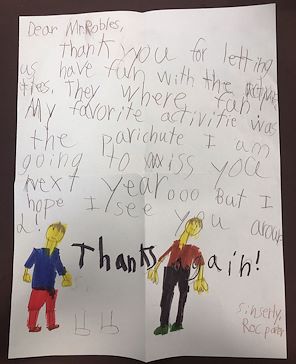 Dear Mr.Robles,
thank you for letting
us have fun with the
tives. They where fun
My favorite activitie was
the parichute I am
going to miss you
Next year ooo But I
hope I see you around
Thanks again!
sinserly,